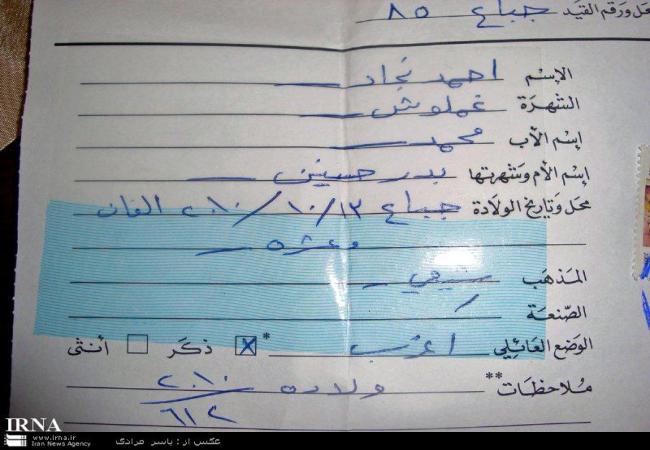 محل ورقم القيد جباع ٨٥
الإسم احمد نجاد
الشهرة غملوش
إسم الأب محمد
إسم الأم وشهرتها بدر حسين
محل وتاريخ الولادة جباع ١٣/١٠/٢٠١٠ الفان
وعشرة
المذهب شيعي
الصنعة /
الوضع العائلي اعزب * ☒ ذكر ☐ أنثى
ملاحظات ** ولادة ٢٠١٠/٦١٢
IRNA
www.irna.ir
Iran News Agency
عکس از : یاسر مرادی